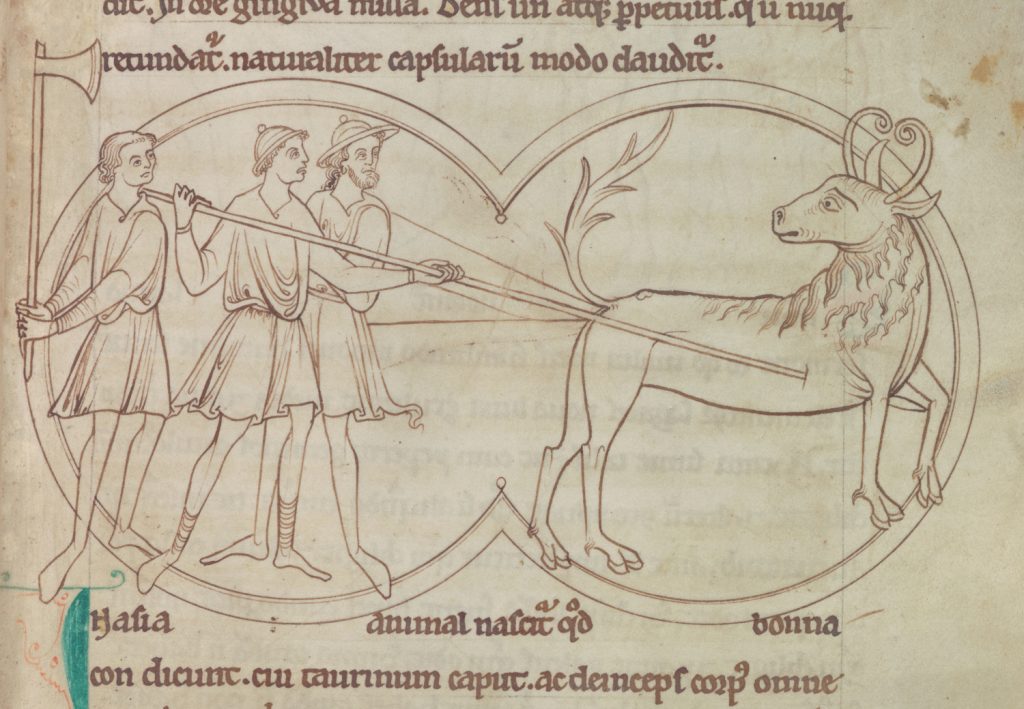 dic. In ore gingiva nulla. Dens un atq; ꝑpetuus. qui nuq.
retundat᷑. naturaliter capsularū modo claudit᷑.
N asia animal nascit᷑ qd̄ bonna
con dicunt. cui taurinum caput. ac deinceps corp᷒ omne